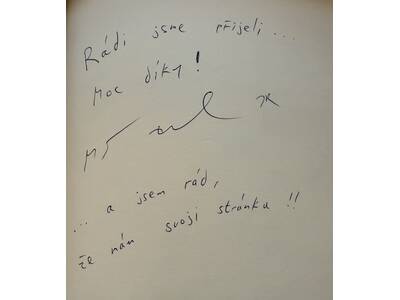 Rádi jsme přijeli ...
Moc díky!
... a jsem rád,
že mám svoji stránku !!